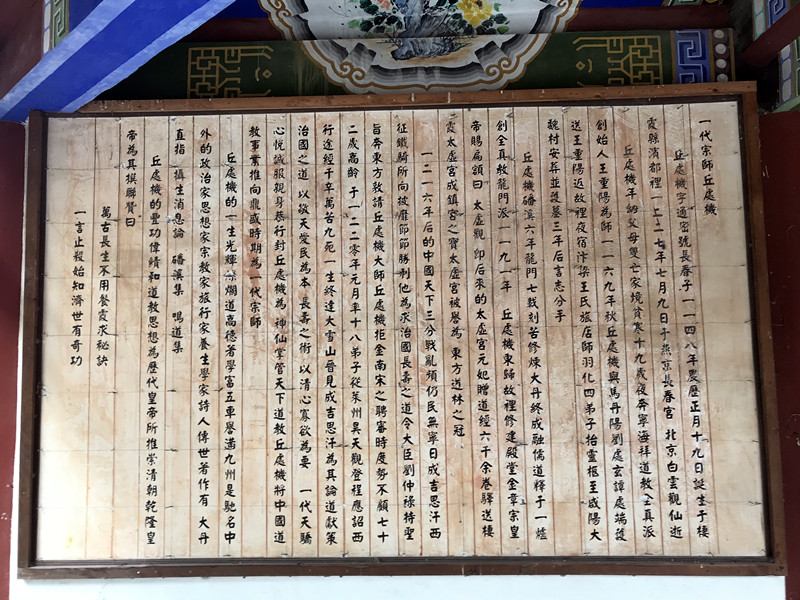 一代宗師丘處機
丘處機字通密號長春子一一四八年農歷正月十九日誕生于棲
霞縣濱都裡一二二七年七月九日于燕京長春宮 北京白雲觀仙逝
丘處機年幼父母雙亡家境貧寒十九歲夜奔寧海祥道教全真派
創始人王重陽為師一一六九年秋丘處機與馬丹陽劉處玄譚處端護
送王重陽返故裡夜宿汴梁王氏旅店師羽化四弟子抬靈柩至咸陽大
魏村安葬並護墓三年后言志分手
丘處機磻溪六年龍門七載刻苦修煉大丹終成融儒道釋于一爐
創全真教龍門派一一九一年 丘處機東歸故裡修建殿堂金章宗皇
帝賜扁額曰 太虛觀 即后來的太虛宮元妃贈道經六千余卷驛送棲
霞太虛宮成鎮宮之寶太虛宮被譽為 東方道林之冠
一二一六年后的中國天下三分戰亂頻仍民無寧日成吉思汗西
征鐵騎所向披靡節節勝利他為求治國長壽之道令大臣劉仲祿持聖
旨奔東方敦請丘處機大師丘處機拒金南宋之聘審時度勢不顧七十
二歲高齡于一二二零年元月率十八弟子從萊州昊天觀登程應詔西
行途經千辛萬苦九死一生終達大雪山晉見成吉思汗為其論道獻策
治國之道以敬天愛民為本 長壽之術 以清心寡欲為要 一代天驕
心悅誠服親身恭行封丘處機為 神仙掌管天下道教丘處機將中國道
教事業推向鼎盛時期為一代宗師
丘處機的一生光輝燦爛道高德著學富五車譽滿九州是馳名中
外的政治家思想家宗教家旅行家養生學家詩人傳世著作有 大丹
直指 攝生消息論 磻溪集 鳴道集
丘處機的豐功偉績和道教思想為歷代皇帝所推崇清朝乾隆皇
帝為其撰聯贊曰
萬古長生不用餐霞求秘訣
一言止殺始知濟世有奇功